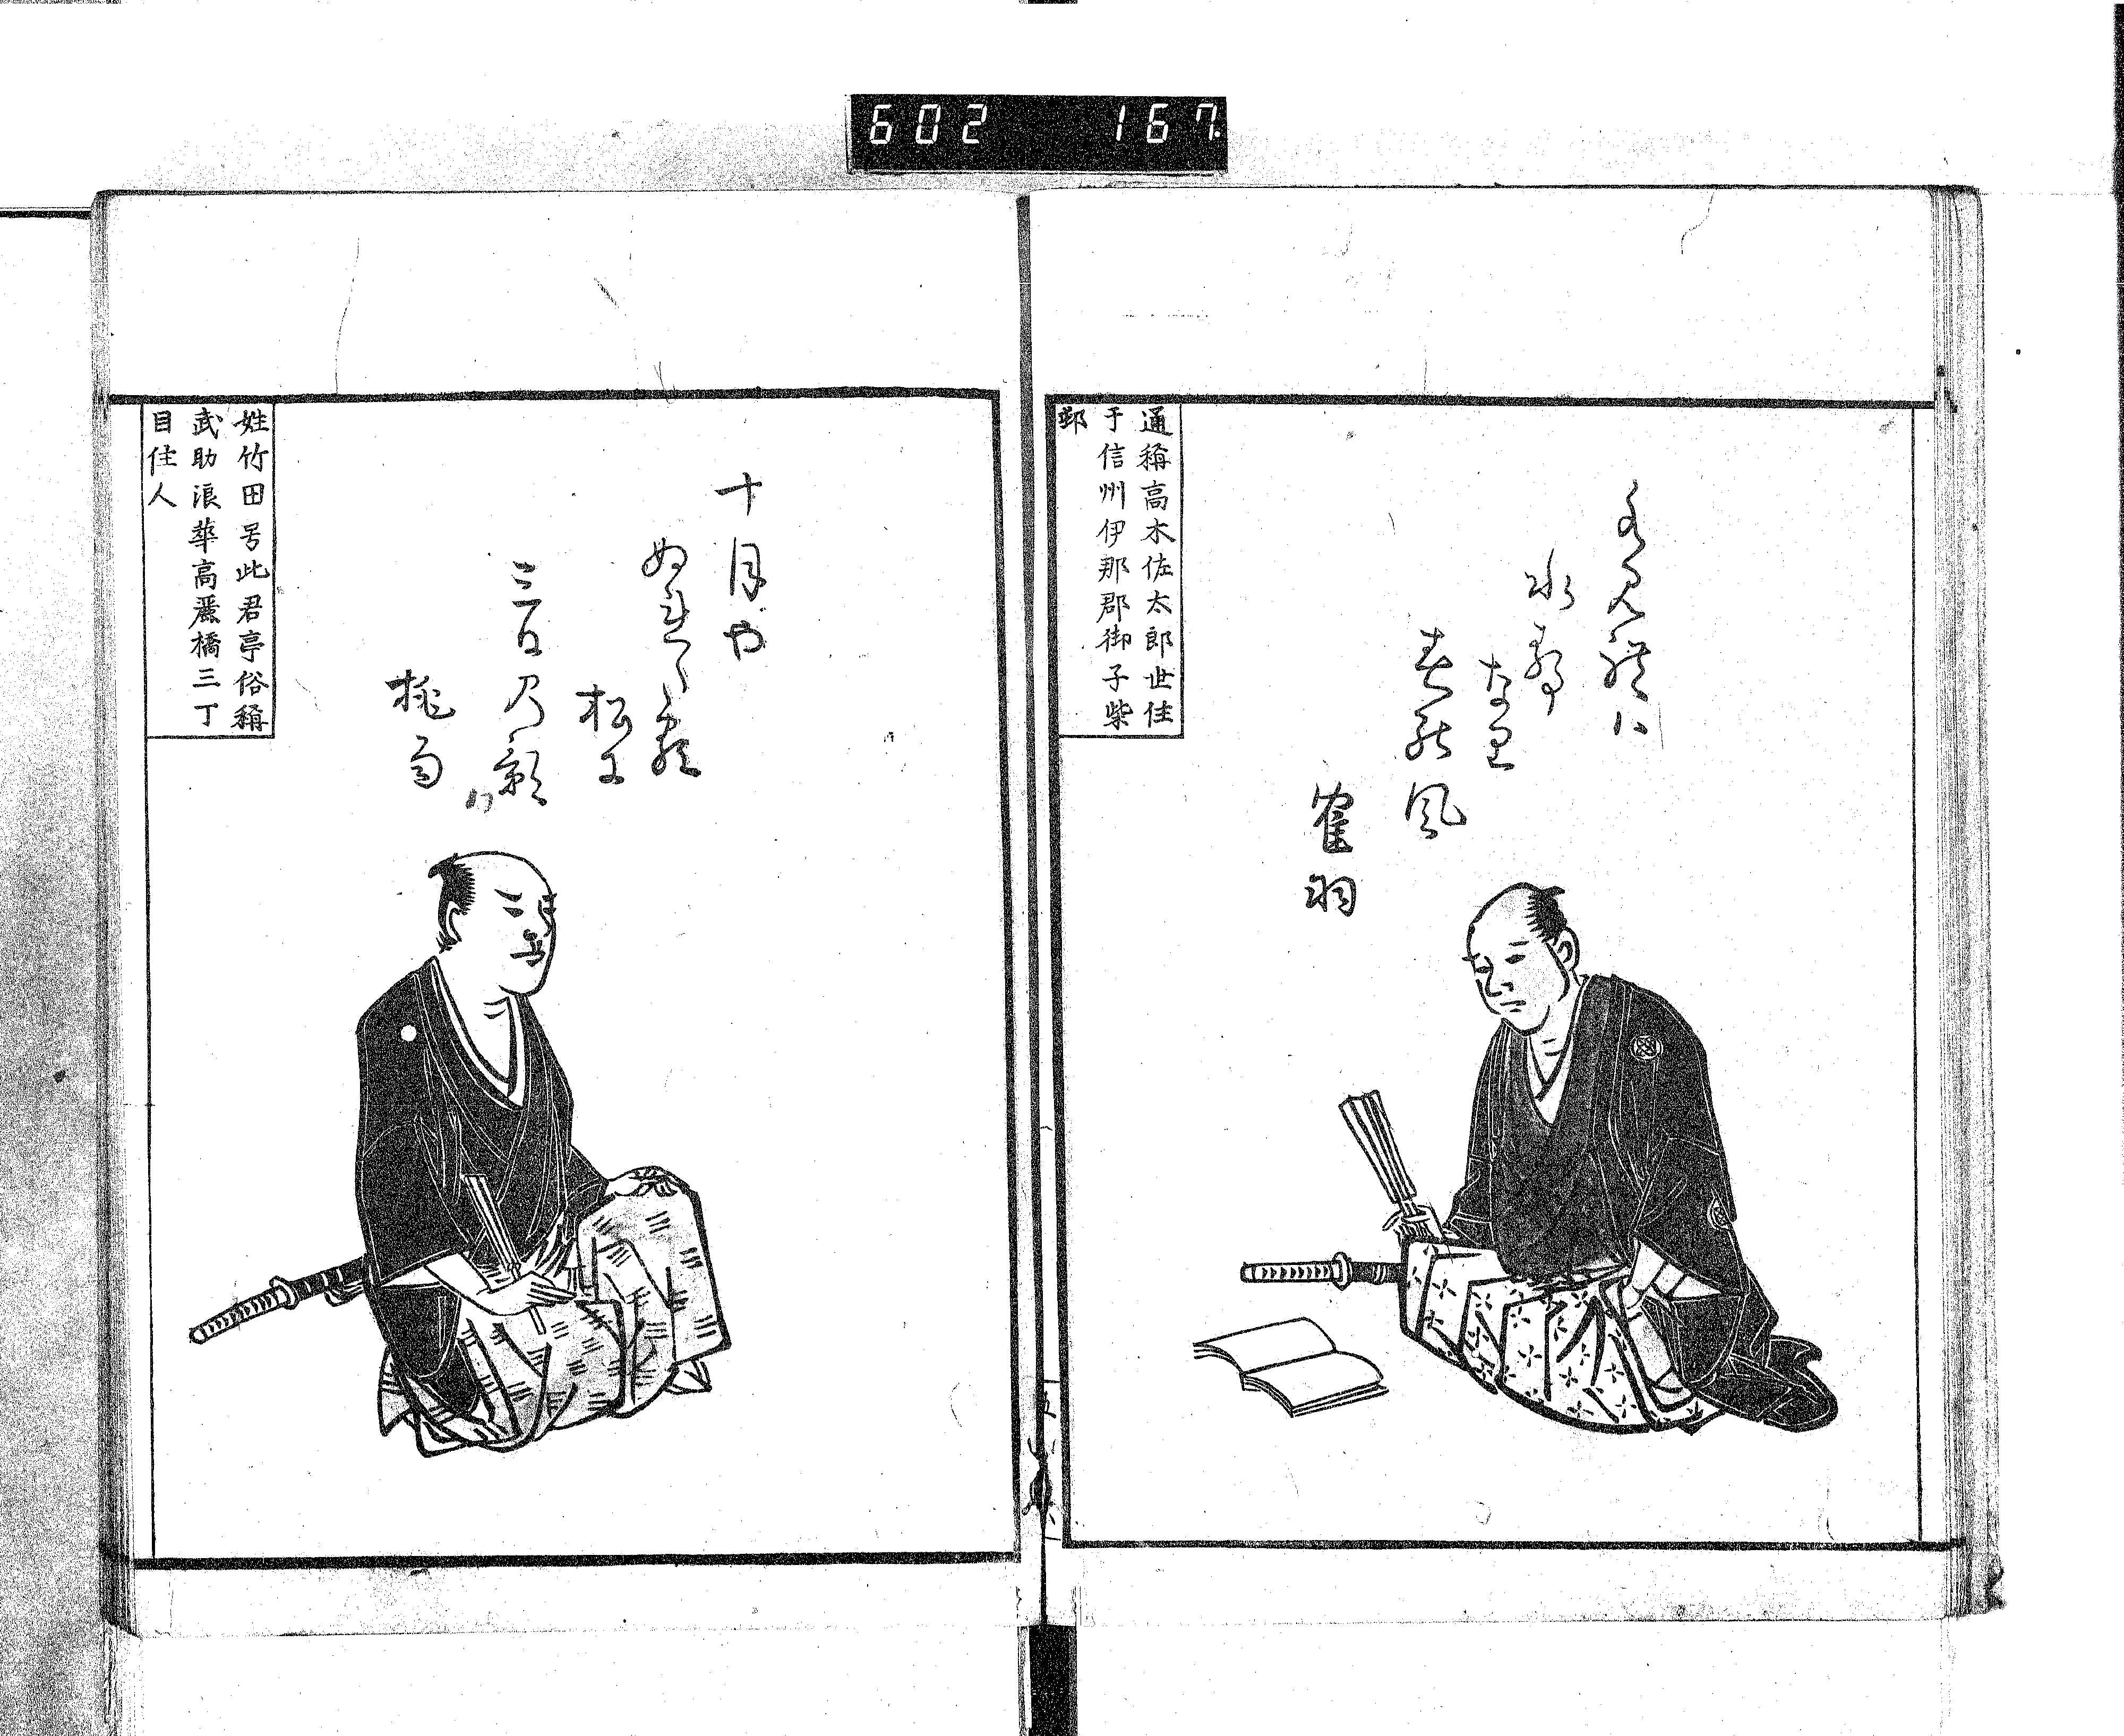 602 167
通稱高木佐太郎世住
于信州伊那郡御子柴
邨
水静
なり
春の風
隺羽
姓竹田号此君亭俗稱
武助浪華高麗橋三丁
目住人
十月や
松に
三日乃影
桃雨